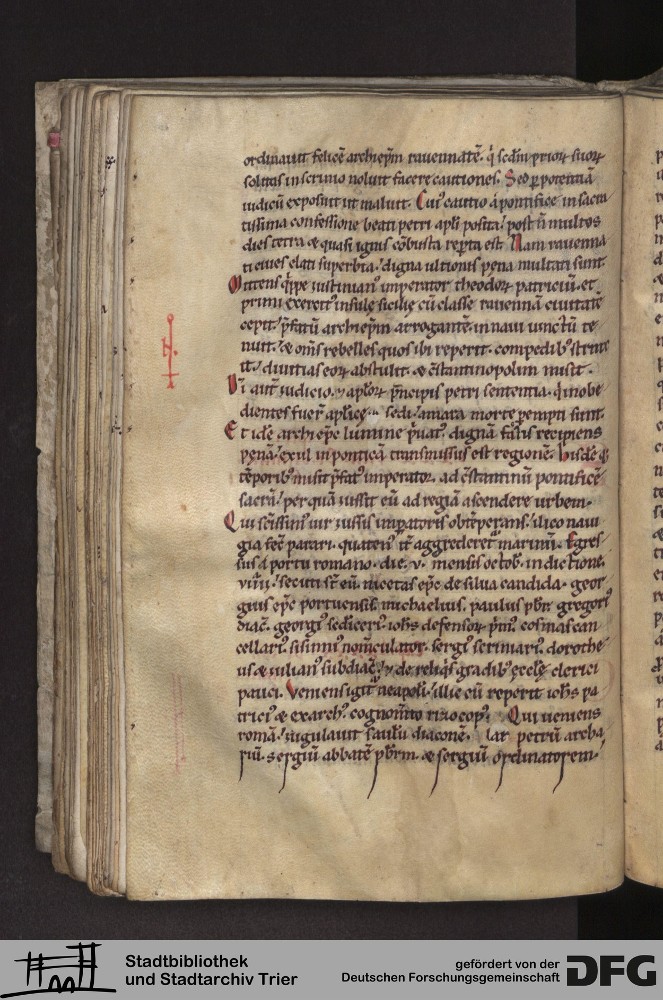 ordinauit felicē archiep̄m rauennatē. q̓ scd̄m prioꝝ suoꝝ
solitas in scrinio noluit facere cautiones. Sed ꝑ potentiā
iudicū exposuit ut maluit. Cuiꝰ cautio a pontifice in sacra
tissima confessione beati petri apl̄i posita / post n̄ multos
dies tetra & quasi ignis cōbusta reꝑta est. Nam rauenna
ti ciues elati superbia / digna ultionis pęna multati sunt.
Mittens q̓ppe iustinianꝰ imperator theodorū patriciū. et
primi exercitꝰ insulę sicilię cū classe rauennā ciuitatē
cepit. p̄fatū archiep̄m arrogantē. in naui uinctū te
nuit. & om̄s rebelles quos ibi reperit. compedibꝰ strinx
it. / diuitias eoꝝ abstulit. & c̄stantinopolim misit.
Di aut̄ iudicio. ⁊ apl̄oꝝ p̄ncipis petri sententia. q̓ inobe
dientes fuer̄ aplicę sedi / amara morte ꝑempti sunt.
Et idē archiep̄c lumine p̓uatꝰ. dignā factis recipiens
pęnā / exul in ponticā transmissus est regionē. hisdē q;
tēporibꝰ misit p̄fatꝰ imperator. ad c̄stantinū pontificē
sacrā / per quā iussit eū ad regiā ascendere urbem.
Qui sc̄issimꝰ uir iussis imꝑatoris obtēperans. / ilico naui
gia fec̄ parari. quatenꝰ it̄ aggrederet̄ marinū. Egres
sus a portu romano. die. v. mensis octob̄. indictione.
viiii. / secuti st̄ eū. nicetas ep̄c de silua candida. geor
gius ep̄c portuensis. michaelius. paulus p̄br̄. gregoriꝰ
diac̄. georgiꝰ sc̄diceriꝰ. ioh̄s defensoꝝ p̄mꝰ. cosmas sac
cellariꝰ. sisinniꝰ nom̄culator. sergiꝰ scriniariꝰ. dorothe
us. & iulianꝰ subdiac̄. / ⁊ de reliq̓s gradibꝰ ęcclę clerici
pauci. Veniens igit̄ neapolī / illic eū reperit ioh̄s pa
triciꝰ & exarchꝰ. cognom̄to rizocopꝰ. Qui ueniens
romā. / iugulauit saulū diaconē. lar petrū archa
riū. sergiū abbatē p̄br̄m. & sergiū ordinatorem.
Stadtbibliothek
und Stadtarchiv Trier
gefördert von der
Deutschen Forschungsgemeinschaft
DFG